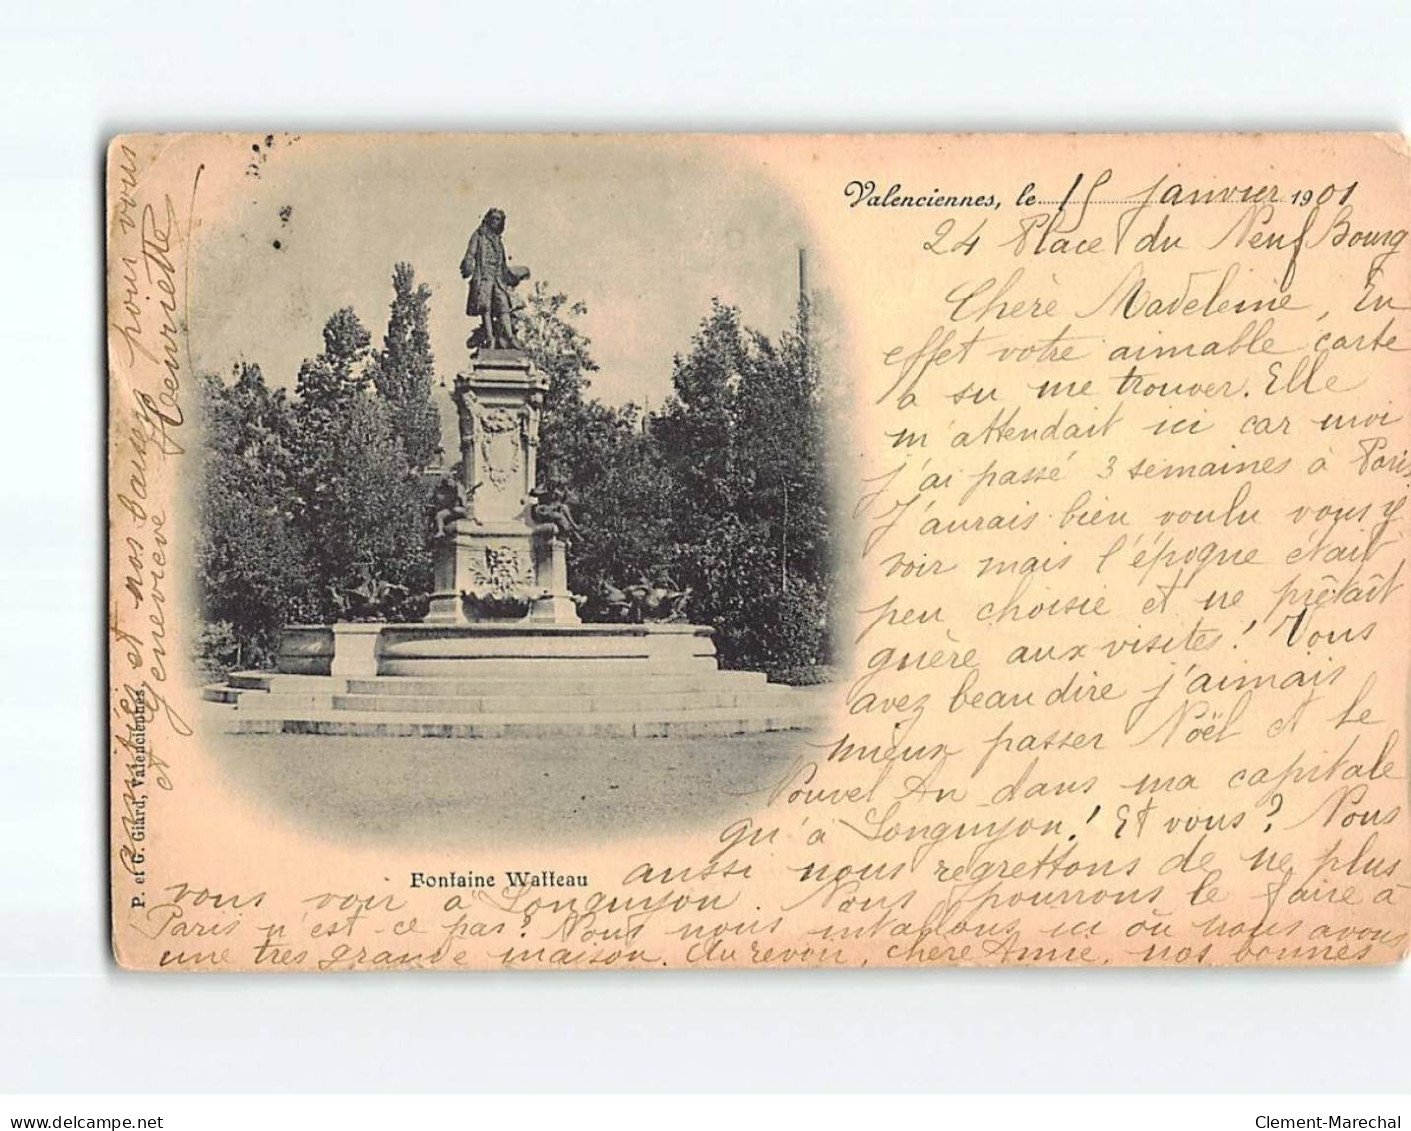 Valenciennes, le 15 Janvier 1901
24 Place du Neuf Bourg
Chère Madeleine, En
effet votre aimable carte
a su me trouver. Elle
m'attendait ici car moi
j'ai passé 3 semaines à Paris
J'aurais bien voulu vous y
voir mais l'époque était
peu choisie et ne prêtait
guère aux visites! Vous
avez beau dire j'aimais
mieux passer Noël et le
Nouvel An dans ma capitale
qu'à Longuyon! Et vous? Nous
aussi nous regrettons de ne plus
vous voir à Longuyon. Nous pourrons le faire à
Paris n'est-ce pas? Nous nous intallons ici où nous avons
une très grande maison. Au revoir, chère Amie, nos bonnes
amitiés et nos baisers pour vous
Henriette
et Geneviève
Fontaine Watteau
P. et G. Giard, Valenciennes
www.delcampe.net
Clement-Marechal